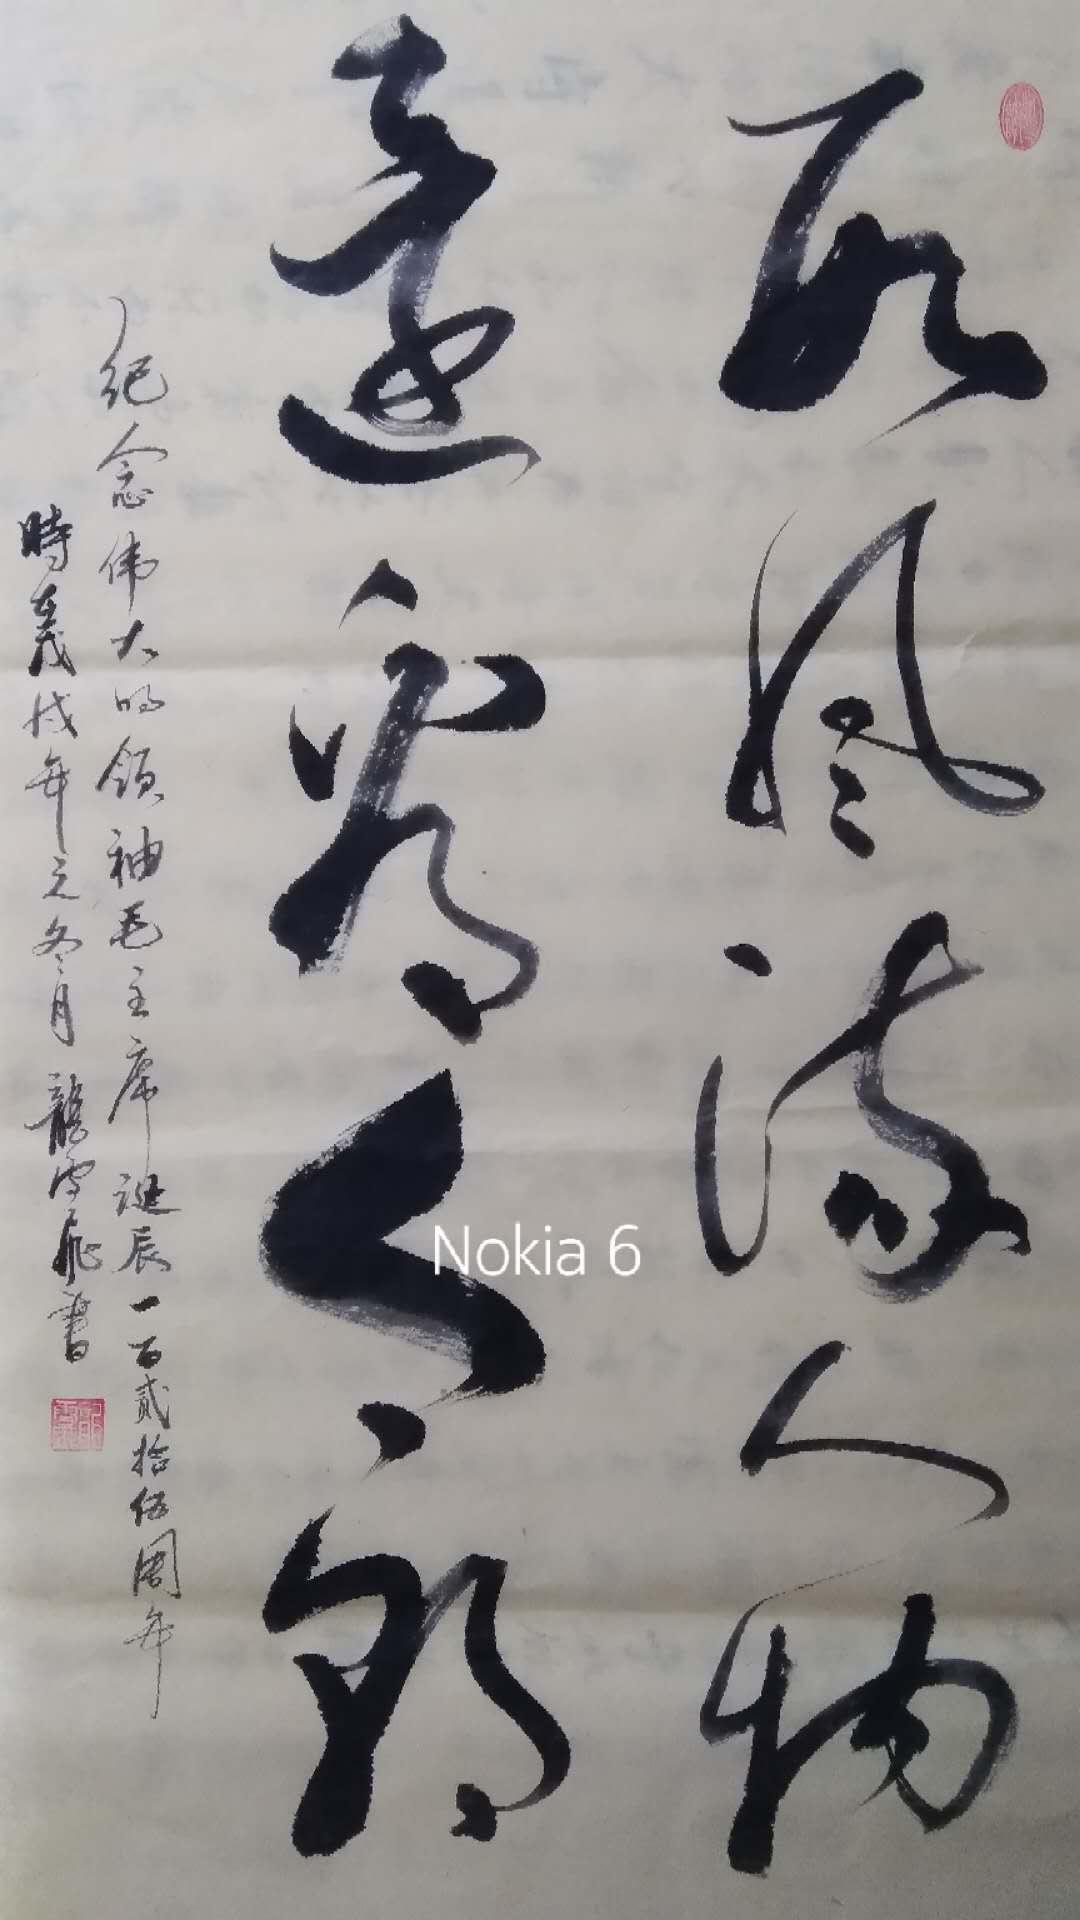 数风流人物
還看今朝
纪念伟大的领袖毛主席诞辰一百贰拾伍周年
時在戊戌年元冬月 龍飛書
Nokia 6